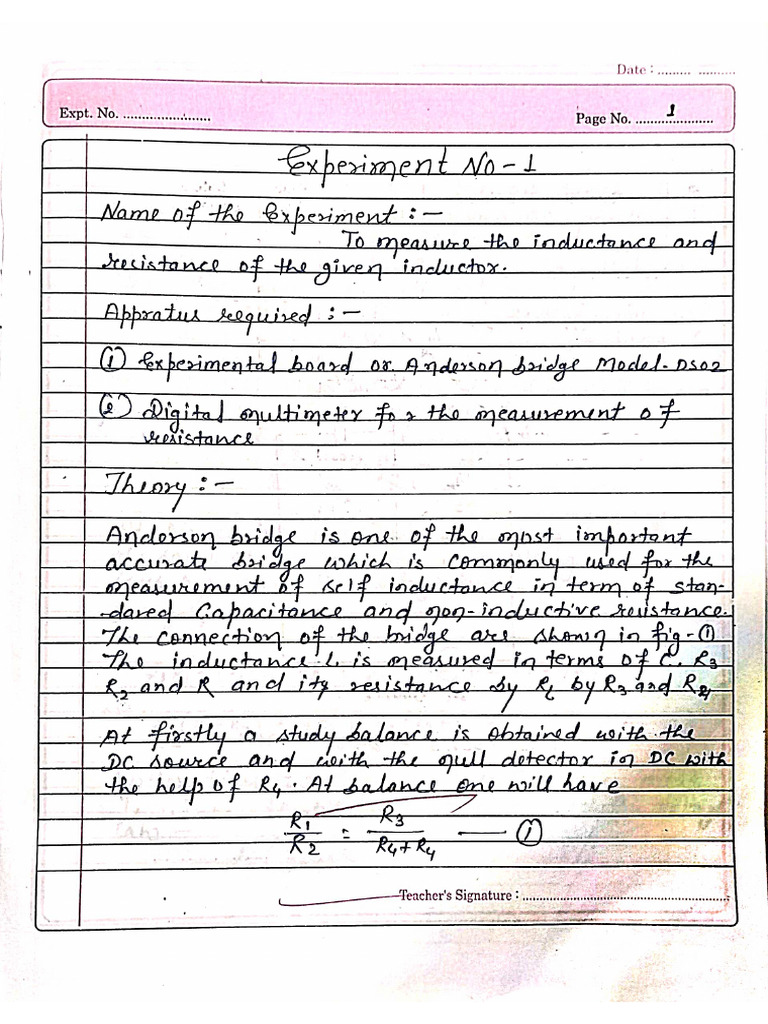 Date : ......... ..........
Expt. No. ........................
Page No. ......1...............
Experiment No-1
Name of the Experiment :-
To measure the inductance and
resistance of the given inductor.
Appratus required :-
① Experimental board or Anderson bridge Model-DS02
② Digital multimeter for the measurement of
resistance
Theory :-
Anderson bridge is one of the most important
accurate bridge which is commonly used for the
measurement of self inductance in term of stan-
dared Capacitance and non-inductive resistance.
The connection of the bridge are shown in fig-①
The inductance L is measured in terms of C. R3
R2 and R and its resistance by RL by R3 and R4
At firstly a study balance is obtained with the
DC source and with the null detector in DC with
the help of R4. At balance one will have
R1/R2 = R3/(R4+R4) — ①
Teacher's Signature : ......................................................